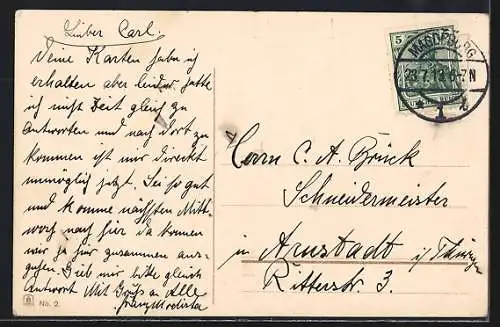 Lieber Carl.
Deine Karten habe ich
erhalten aber leider hatte
ich nicht Zeit gleich zu
Antworten und nach dort zu
kommen ist mir direckt
unmöglich jetzt. Sei so gut
und komme nächsten Mitt-
woch nach hier da können
wir ja hier zusammen aus-
gehen. Gieb mir bitte gleich
Antwort Mit Gruß an Alle
Franz
No. 2.
5
MAGDEBURG
23.7.13 6-7N
Herrn C. A. Brück
Schneidermeister
in Arnstadt i/Thüringen
Ritterstr. 3.